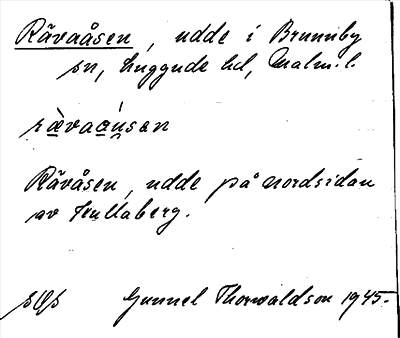 Rävaåsen, udde i Brunnby
sn, Luggude hd, Malm. l.
rävaåsen
Rävåsen, udde på nordsidan
av Kullaberg.
Gunnel Thorwaldson 1945.